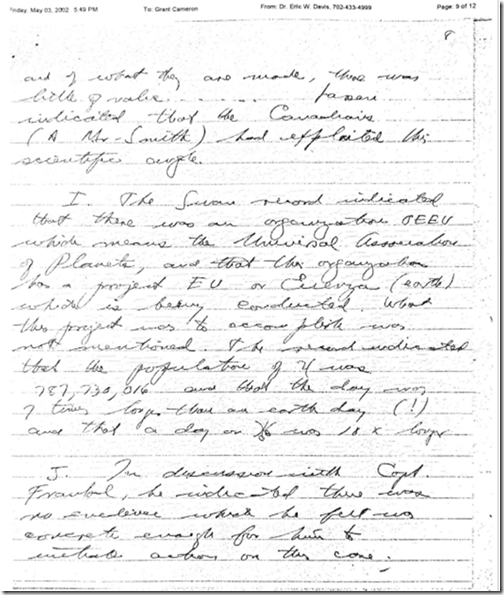 Friday, May 03, 2002 5:49 PM To: Grant Cameron From: Dr. Eric W. Davis, 702-433-4999 Page: 9 of 12
8
and of what they are made, there was
little of value
indicated that the Canadians
(A Mr. Smith) had exploited this
scientific angle.
I. The Swan record indicated
that there was an organization OEEV
which means the Universal Association
of Planets, and that this organization
has a project EU or (earth)
which is being conducted. What
this project was to accomplish was
not mentioned. The record indicated
that the population of was
787,730,016 and that the day was
7 times longer than an earth day (!)
and that a day on was 18 x longer
J. In discussion with Capt.
he indicated there was
no evidence which he felt was
concrete enough for him to
initiate action on this case.